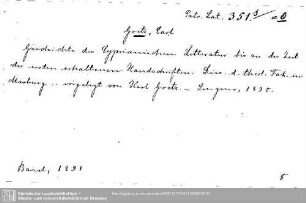 Patr. Lat. 351
Goetz, Carl
Geschichte der Cyprianischen Litteratur bis zu der Zeit
der ersten erhaltenen Handschriften. Diss. d. theol. Fak. in
Marburg .. vorgelegt von Karl Goetz. –
Basel, 1891
Sächsische Landesbibliothek –
Staats- und Universitätsbibliothek Dresden